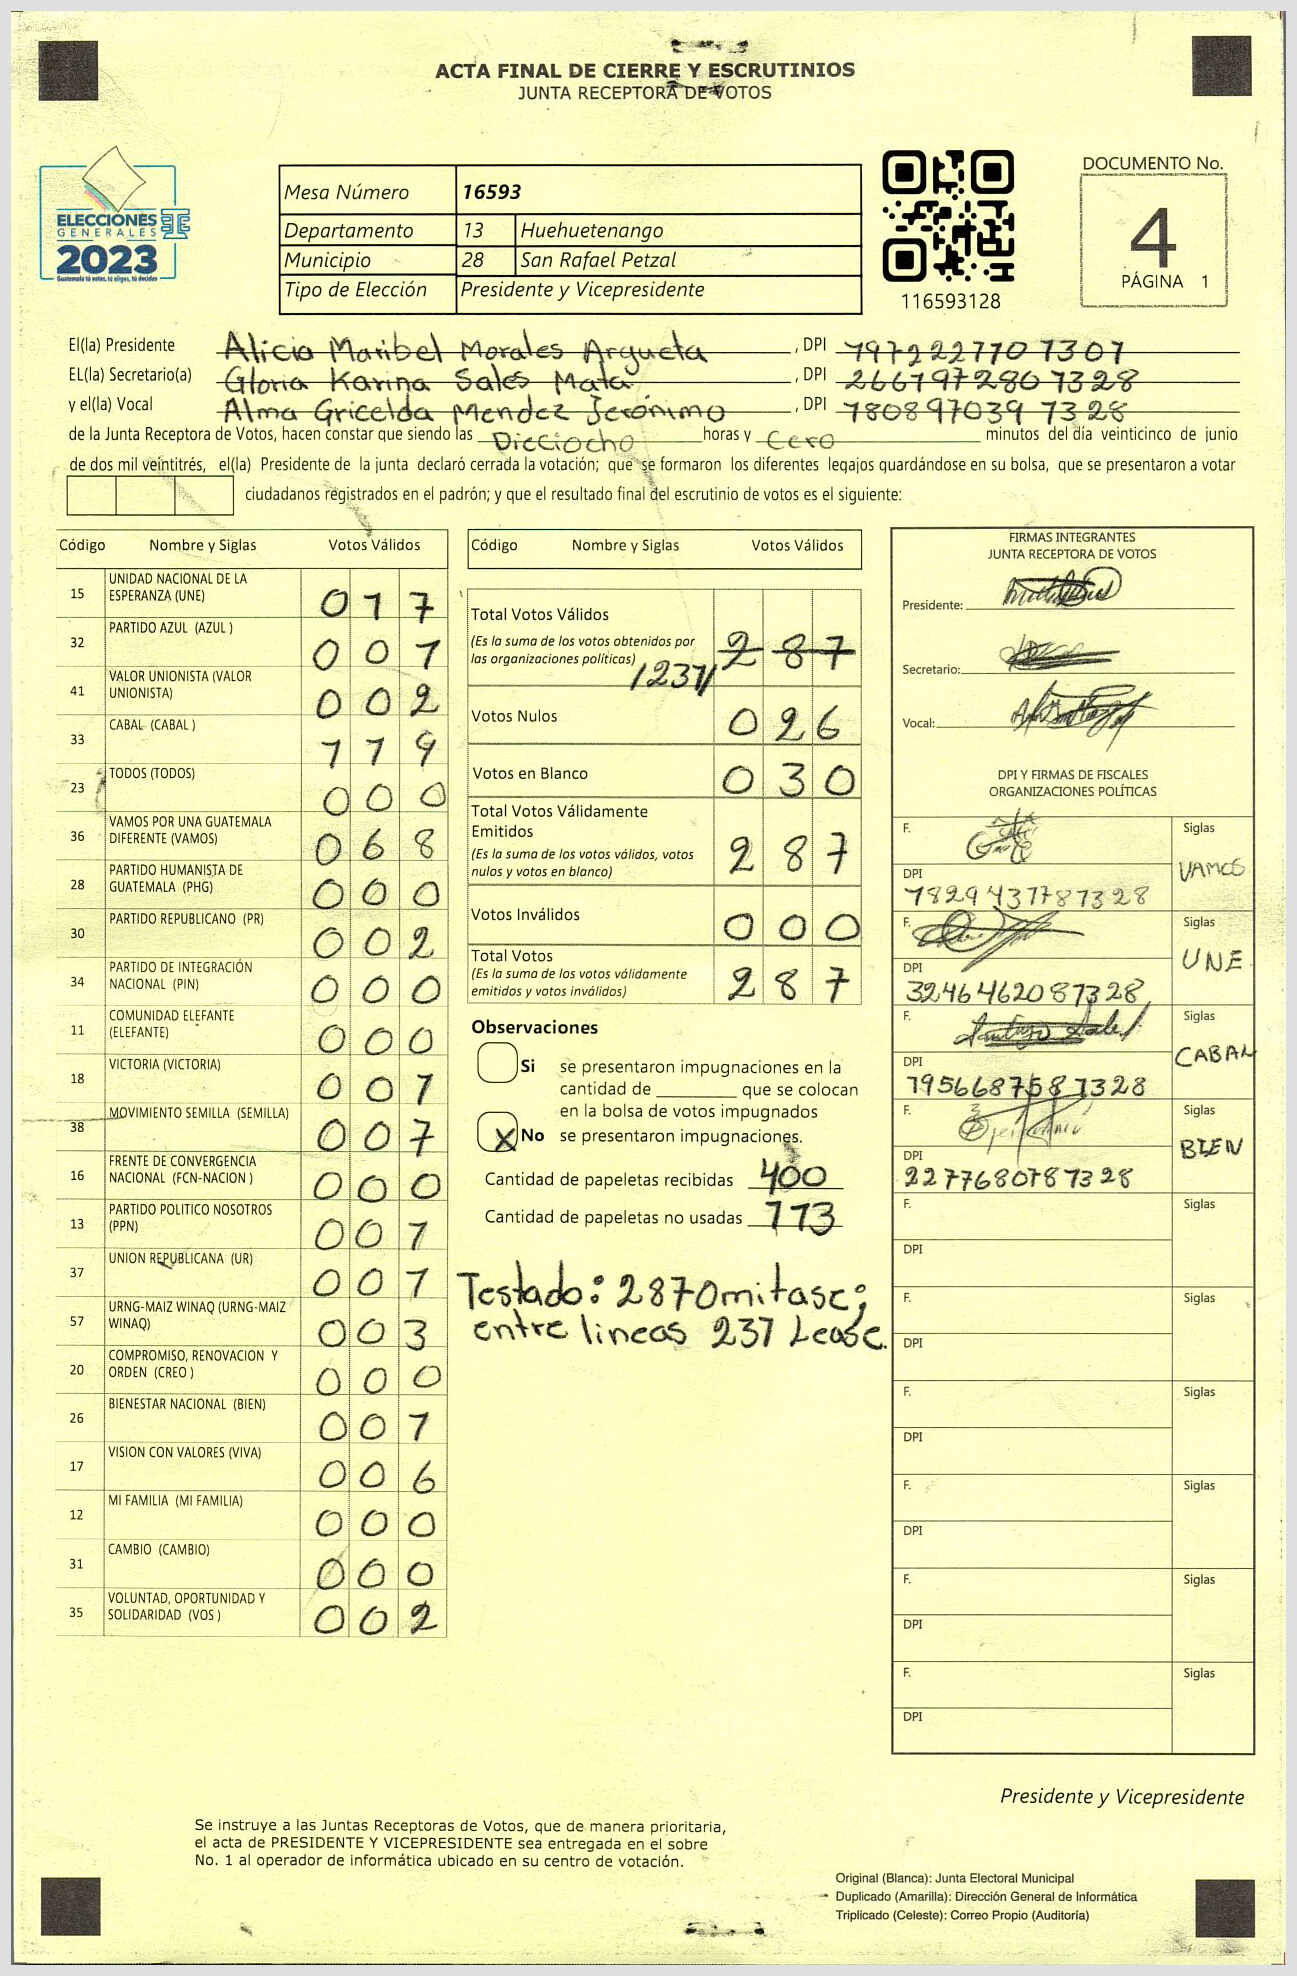 ACTA FINAL DE CIERRE Y ESCRUTINIOS
JUNTA RECEPTORA DE VOTOS
ELECCIONES
GENERALES
2023
Guatemala tú votas, tú eliges, tú decides
Mesa Número 16593
Departamento 13 Huehuetenango
Municipio 28 San Rafael Petzal
Tipo de Elección Presidente y Vicepresidente
116593128
DOCUMENTO No.
4
PÁGINA 1
El(la) Presidente Alicia Maribel Morales Argueta, DPI
EL(la) Secretario(a) Gloria Karina Sales Mata, DPI 266197280 1328
y el(la) Vocal Alma Gricelda Mendez Jerónimo, DPI 180897039 1328
de la Junta Receptora de Votos, hacen constar que siendo las Dieciocho horas y Cero minutos del día veinticinco de junio
de dos mil veintitrés, el(la) Presidente de la junta declaró cerrada la votación; que se formaron los diferentes legajos guardándose en su bolsa, que se presentaron a votar
ciudadanos registrados en el padrón; y que el resultado final del escrutinio de votos es el siguiente:
Código Nombre y Siglas Votos Válidos
15 UNIDAD NACIONAL DE LA ESPERANZA (UNE) 0 1 7
32 PARTIDO AZUL (AZUL ) 0 0 1
41 VALOR UNIONISTA (VALOR UNIONISTA) 0 0 2
33 CABAL (CABAL ) 1 1 9
23 TODOS (TODOS) 0 0 0
36 VAMOS POR UNA GUATEMALA DIFERENTE (VAMOS) 0 6 8
28 PARTIDO HUMANISTA DE GUATEMALA (PHG) 0 0 0
30 PARTIDO REPUBLICANO (PR) 0 0 2
34 PARTIDO DE INTEGRACIÓN NACIONAL (PIN) 0 0 0
11 COMUNIDAD ELEFANTE (ELEFANTE) 0 0 0
18 VICTORIA (VICTORIA) 0 0 1
38 MOVIMIENTO SEMILLA (SEMILLA) 0 0 7
16 FRENTE DE CONVERGENCIA NACIONAL (FCN-NACION ) 0 0 0
13 PARTIDO POLITICO NOSOTROS (PPN) 0 0 1
37 UNION REPUBLICANA (UR) 0 0 1
57 URNG-MAIZ WINAQ (URNG-MAIZ WINAQ) 0 0 3
20 COMPROMISO, RENOVACION Y ORDEN (CREO ) 0 0 0
26 BIENESTAR NACIONAL (BIEN) 0 0 1
17 VISION CON VALORES (VIVA) 0 0 6
12 MI FAMILIA (MI FAMILIA) 0 0 0
31 CAMBIO (CAMBIO) 0 0 0
35 VOLUNTAD, OPORTUNIDAD Y SOLIDARIDAD (VOS ) 0 0 2
Código Nombre y Siglas Votos Válidos
Total Votos Válidos
(Es la suma de los votos obtenidos por
las organizaciones políticas) 2 8 7
/231/
Votos Nulos 0 2 6
Votos en Blanco 0 3 0
Total Votos Válidamente
Emitidos
(Es la suma de los votos válidos, votos
nulos y votos en blanco) 2 8 7
Votos Inválidos 0 0 0
Total Votos
(Es la suma de los votos válidamente
emitidos y votos inválidos) 2 8 7
Observaciones
Si se presentaron impugnaciones en la
cantidad de ________ que se colocan
en la bolsa de votos impugnados
X No se presentaron impugnaciones.
Cantidad de papeletas recibidas 400
Cantidad de papeletas no usadas 113
Testado: 287 Omitase;
entre lineas 231 Lease.
FIRMAS INTEGRANTES
JUNTA RECEPTORA DE VOTOS
Presidente:
Secretario:
Vocal:
DPI Y FIRMAS DE FISCALES
ORGANIZACIONES POLÍTICAS
F. Siglas VAMOS
DPI 1829437781328
F. Siglas UNE
DPI 3246462081328
F. Siglas CABAL
DPI 1956687581328
F. Siglas BIEN
DPI 2277680781328
F. Siglas
DPI
F. Siglas
DPI
F. Siglas
DPI
F. Siglas
DPI
F. Siglas
DPI
F. Siglas
DPI
Presidente y Vicepresidente
Se instruye a las Juntas Receptoras de Votos, que de manera prioritaria,
el acta de PRESIDENTE Y VICEPRESIDENTE sea entregada en el sobre
No. 1 al operador de informática ubicado en su centro de votación.
Original (Blanca): Junta Electoral Municipal
Duplicado (Amarilla): Dirección General de Informática
Triplicado (Celeste): Correo Propio (Auditoría)